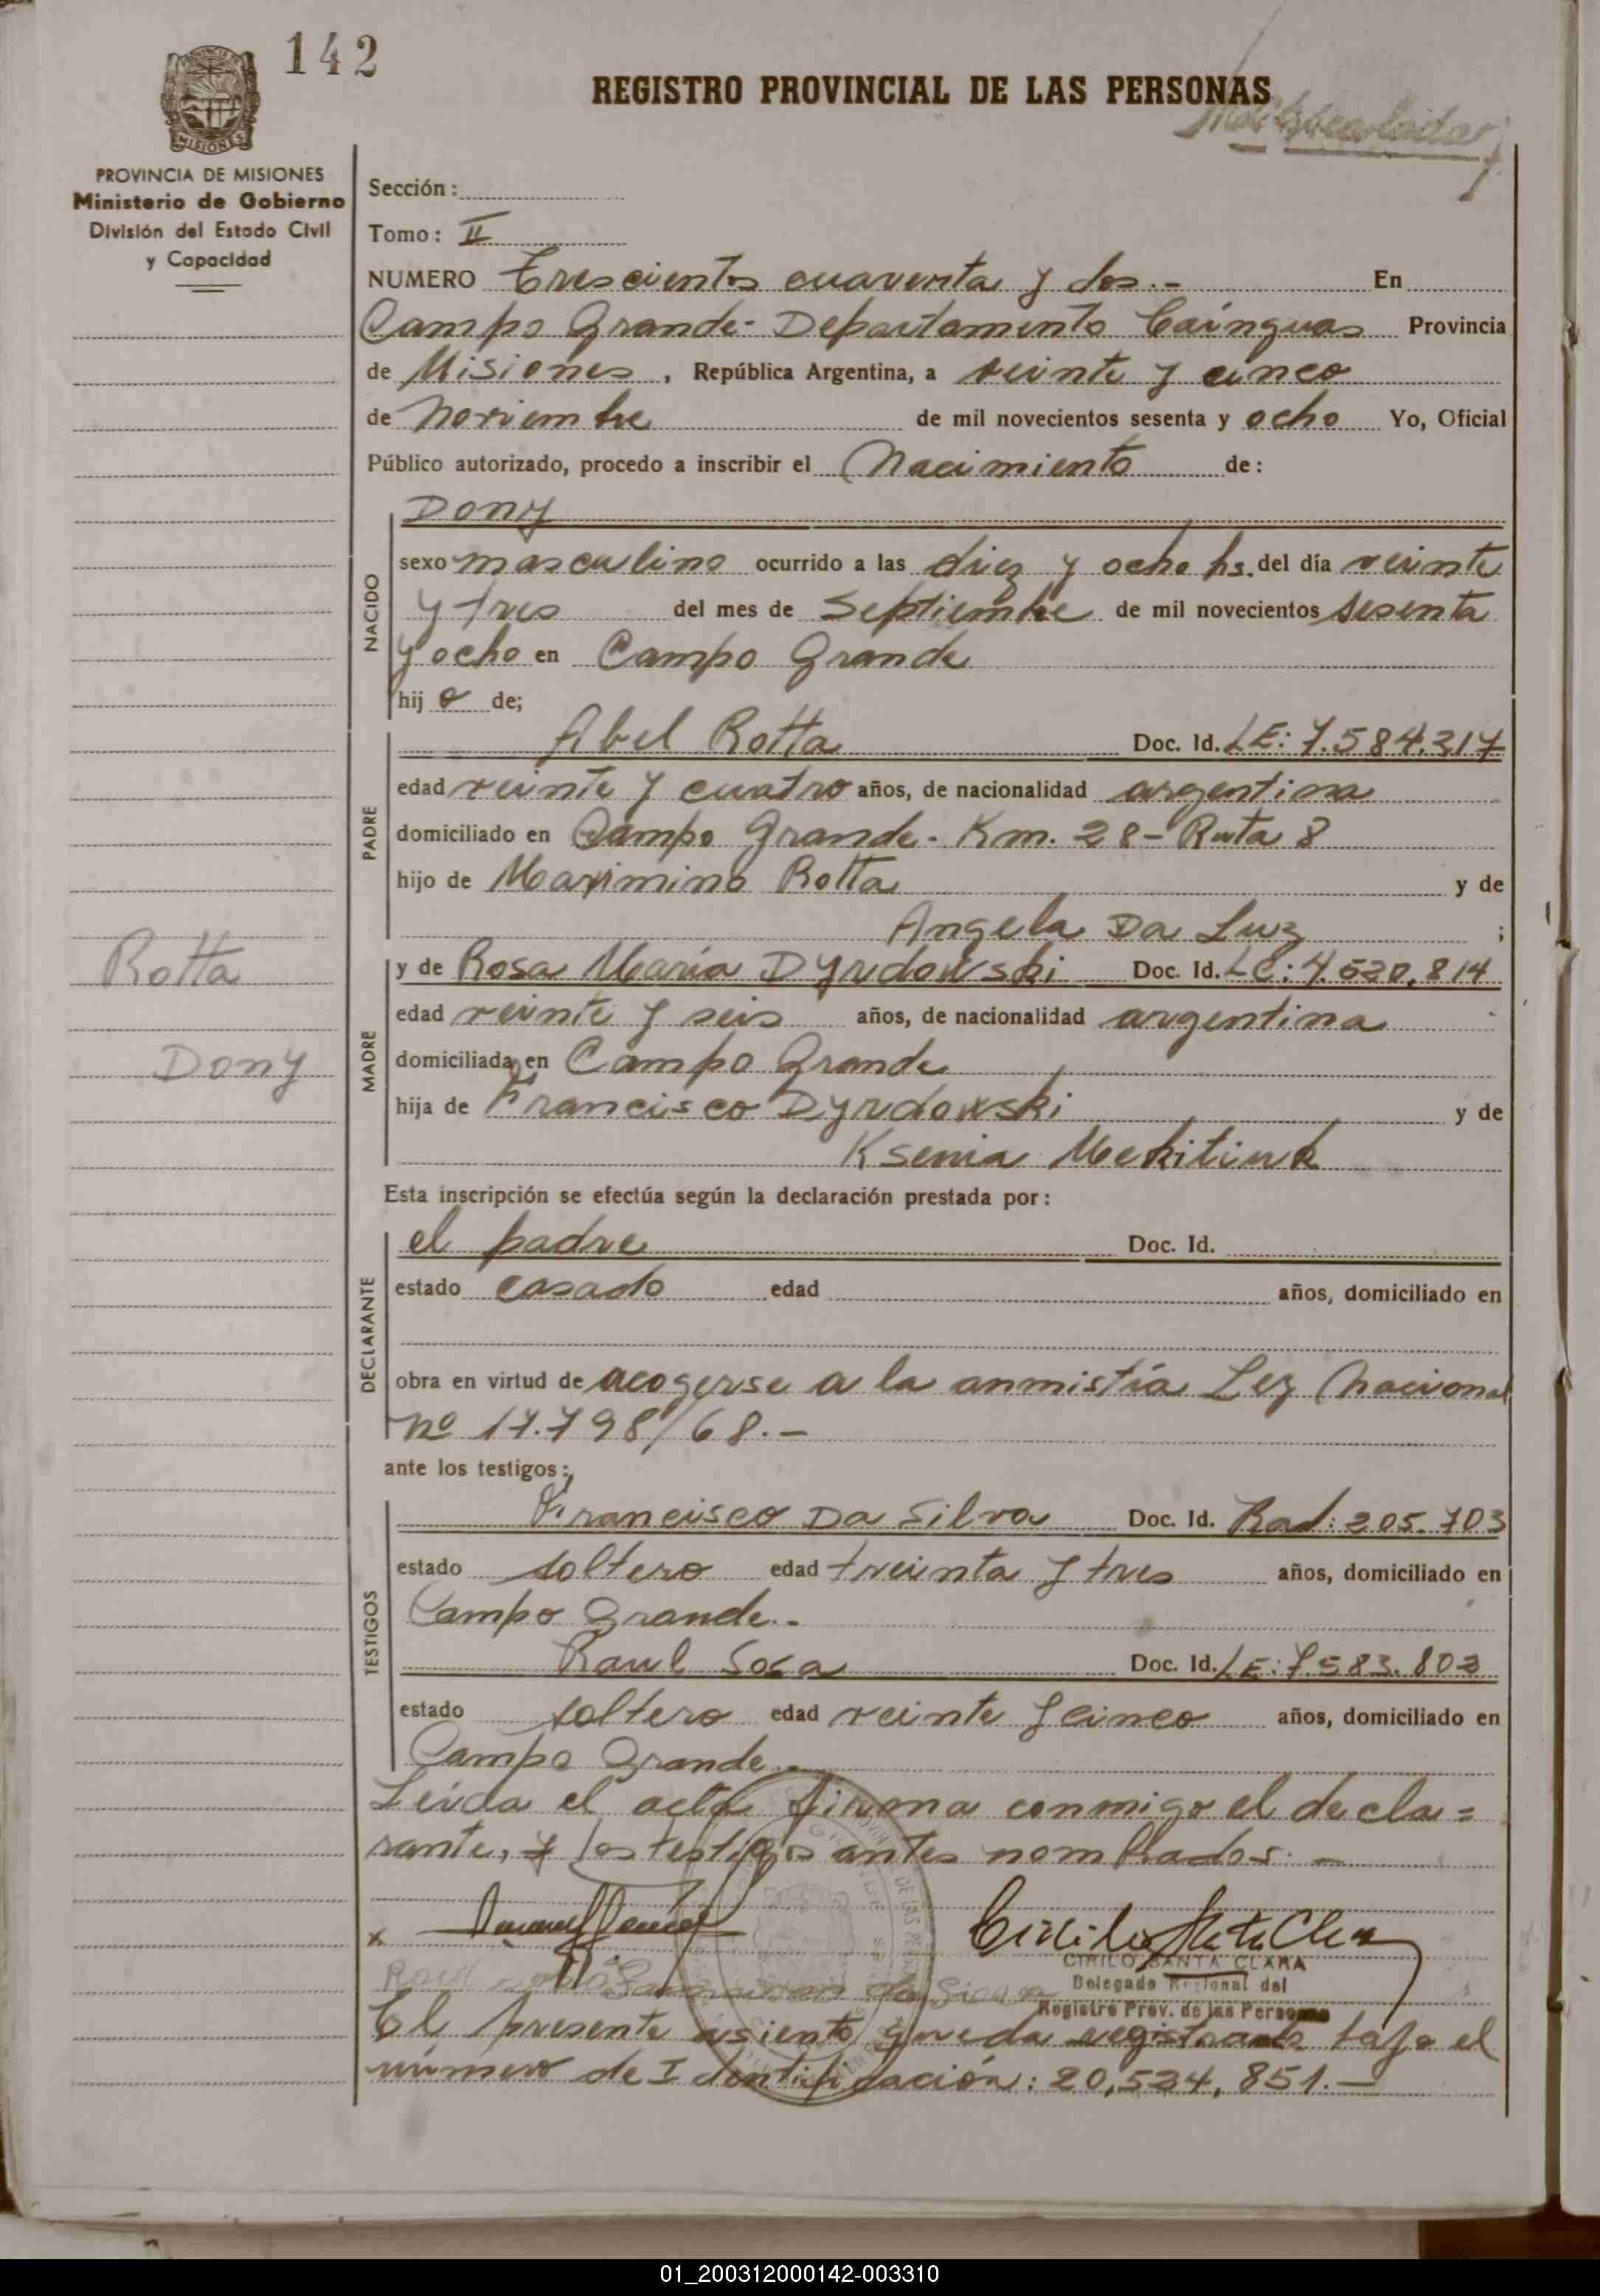 142
REGISTRO PROVINCIAL DE LAS PERSONAS
MISIONES
PROVINCIA DE MISIONES
Ministerio de Gobierno
División del Estado Civil
y Capacidad
Sección:
Tomo: II
NUMERO Trescientos cuarenta y dos.- En
Campo Grande- Departamento Cainguas Provincia
de Misiones, República Argentina, a veinte y cinco
de noviembre de mil novecientos sesenta y ocho Yo, Oficial
Público autorizado, procedo a inscribir el Nacimiento de:
NACIDO
Dony
sexo masculino ocurrido a las diez y ocho hs. del día veinte
y tres del mes de Septiembre de mil novecientos sesenta
y ocho en Campo Grande
hijo de;
PADRE
Abel Rotta Doc. Id. LE: 7.584.317
edad veinte y cuatro años, de nacionalidad argentina
domiciliado en Campo Grande- Km. 28- Ruta 8
hijo de Maximino Rotta y de
Angela Da Luz ;
Rotta
Dony
MADRE
y de Rosa María Dyrdowski Doc. Id. LC: 4.520.814
edad veinte y seis años, de nacionalidad argentina
domiciliada en Campo Grande
hija de Francisco Dyrdowski y de
Ksenia Mekitiuk
Esta inscripción se efectúa según la declaración prestada por:
DECLARANTE
el padre Doc. Id.
estado casado edad años, domiciliado en
obra en virtud de acogerse a la anmistía Ley Nacional
nº 17.798/68.-
ante los testigos:
TESTIGOS
Francisco Da Silva Doc. Id. Rad: 205.703
estado soltero edad treinta y tres años, domiciliado en
Campo Grande.-
Raul Sosa Doc. Id. LE: 7.583.803
estado soltero edad veinte y cinco años, domiciliado en
Campo Grande.-
Leida el acta firma conmigo el decla=
rante, y los testigos antes nombrados.-
x
CIRILO SANTA CLARA
Delegado Regional del
Registro Prov. de las Personas
El presente asiento queda registrado bajo el
número de Identificación: 20,524,851.-
01_200312000142-003310